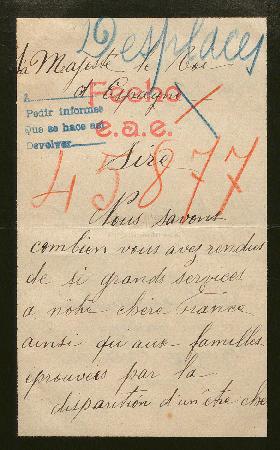 Desplaces
Sa Majesté le Roi
d'Espagne
Fecho
e.a.e.
A
Pedir informes
Que se hace así
Devolver
Sire
45877
Nous savons
combien vous avez rendus
de si grands services
a notre chère France
ainsi qu'aux familles
eprouvées par la
disparition d'un être cher